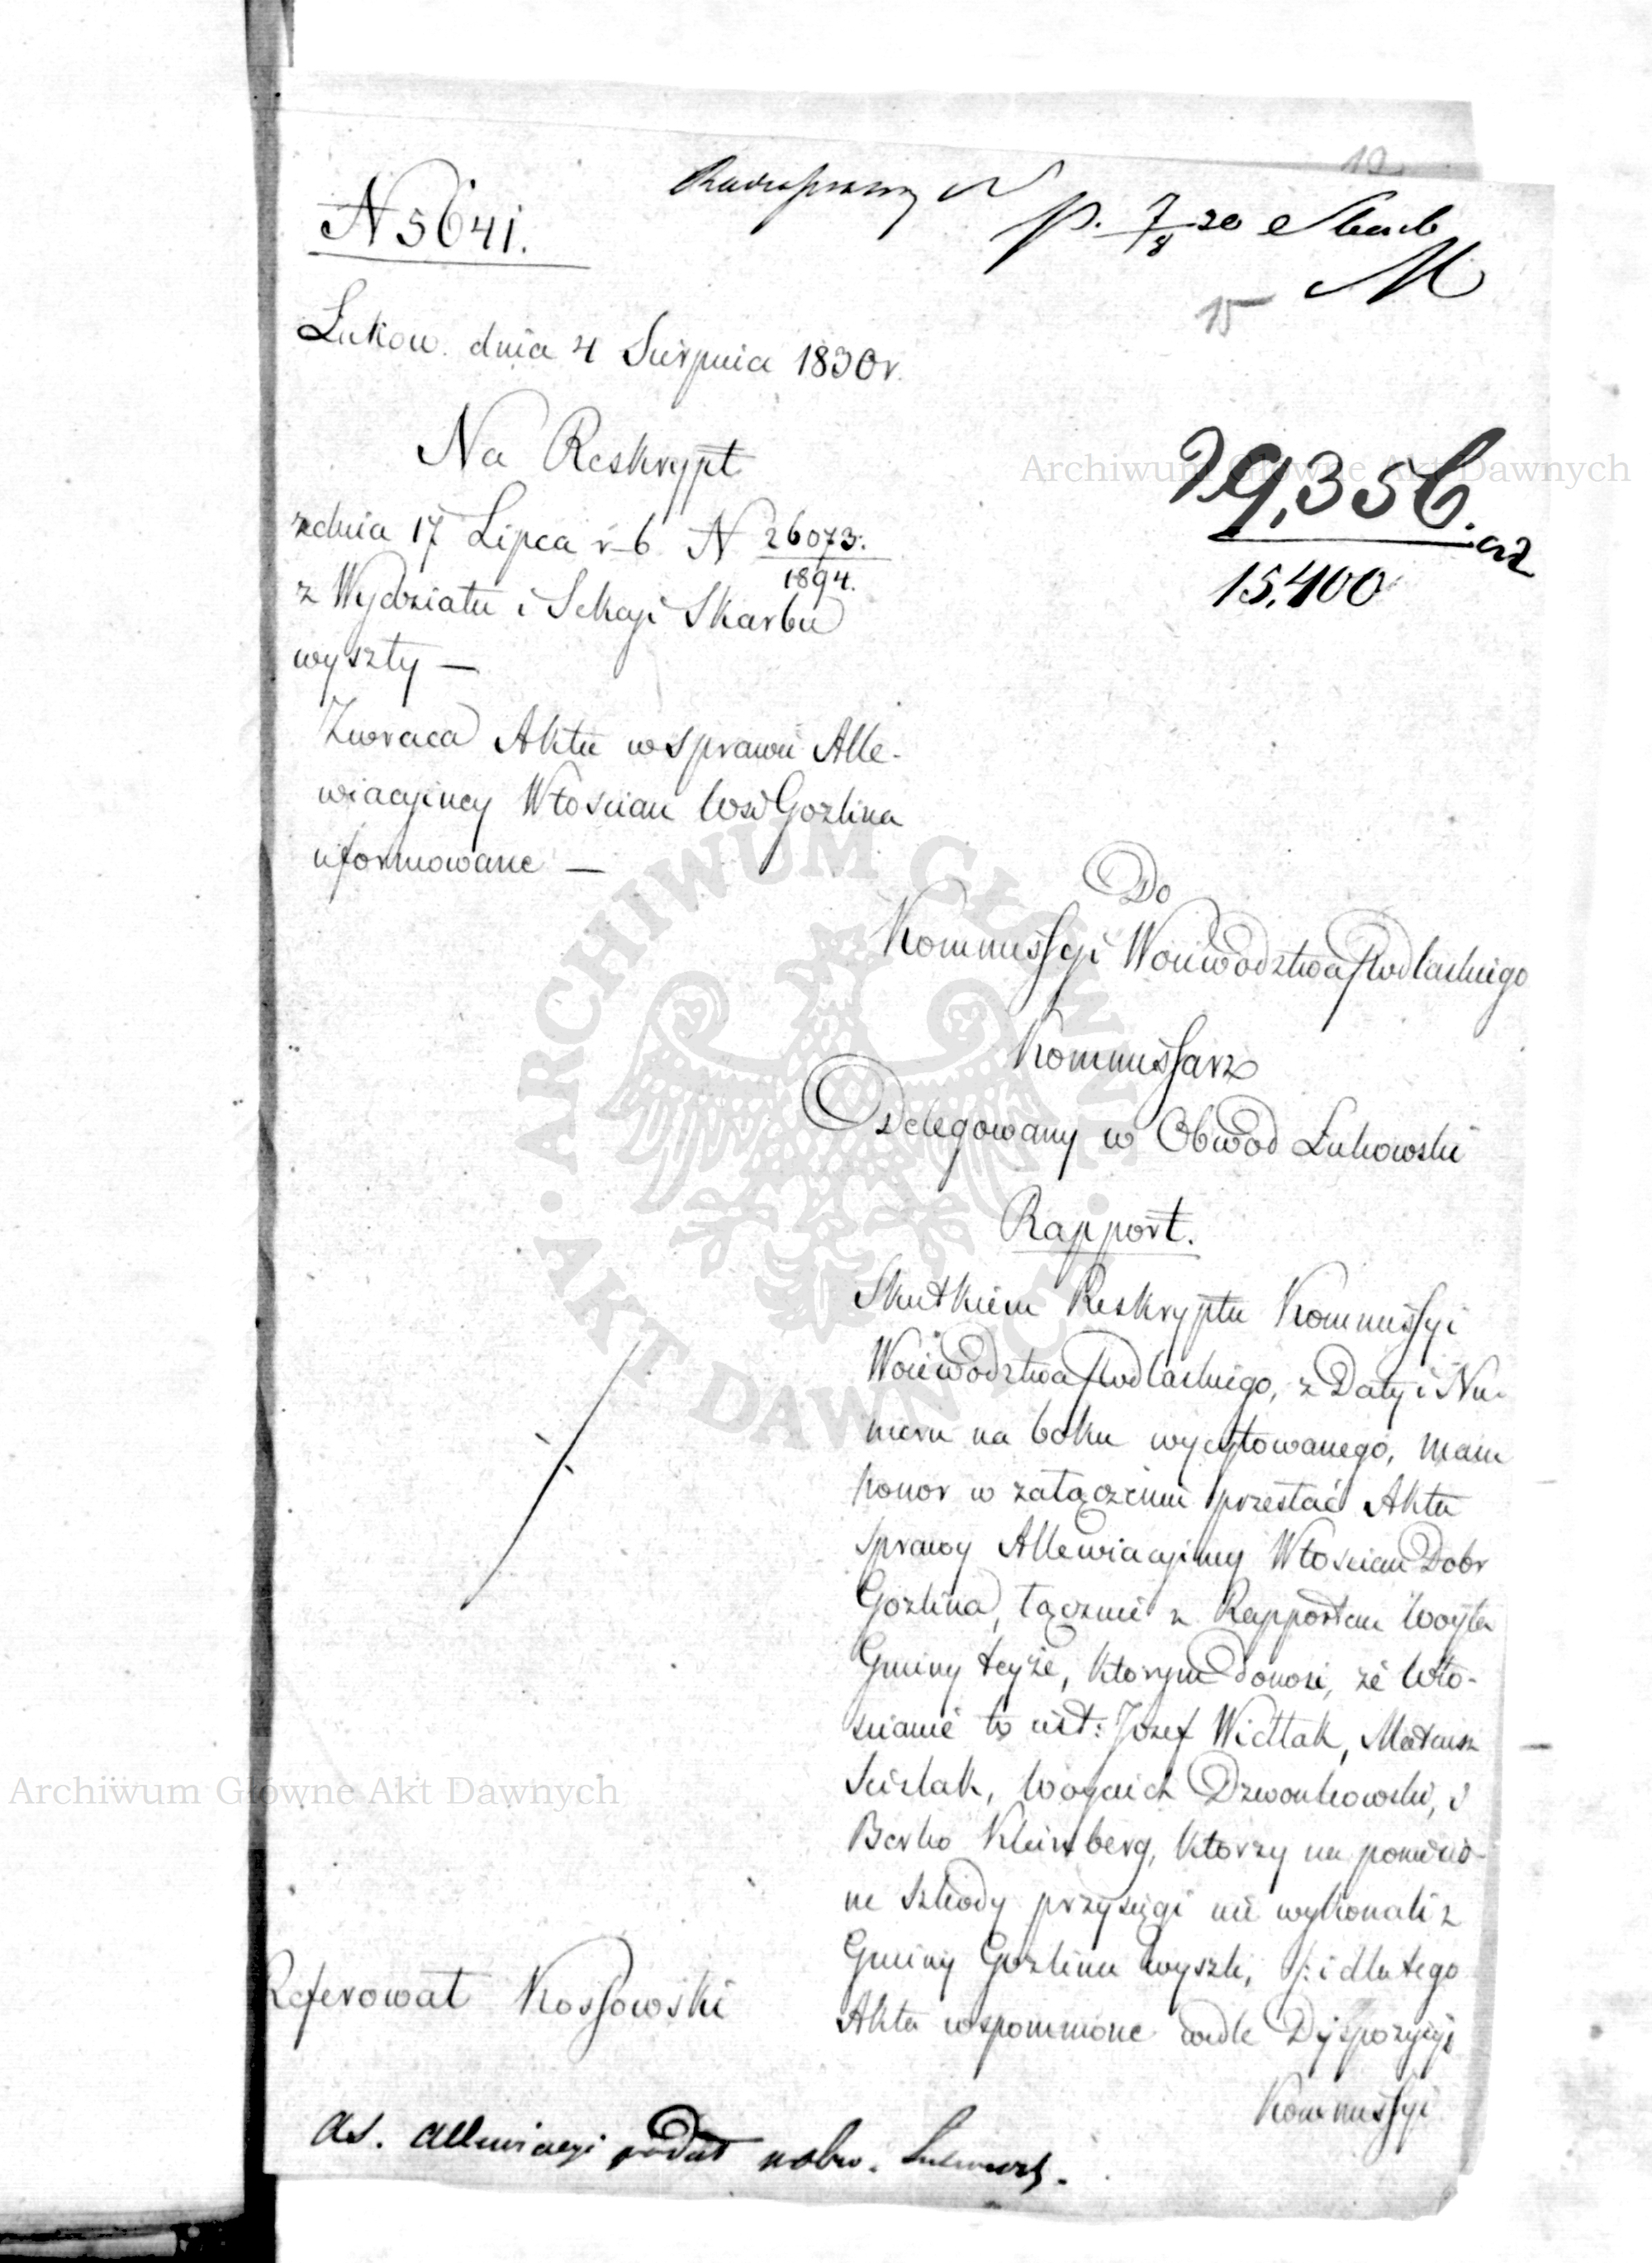 N 5641.
p. 7/8 30
M
15
Łukow. dnia 4 Sierpnia 1830 r.
Na Reskrypt
z dnia 17 Lipca r. b. N 26073:/1894.
z Wydziału i Sekcyi Skarbu
wyszły —
Zwraca Akta w sprawie Alle-
wiacyiney Włościan Wsi Gozlina
uformowane —
29,356.
15,400
Do
Kommissyi Woiewodztwa Podlaskiego
Kommissarz
Delegowany w Obwod Łukowski
Rapport.
Skutkiem Reskryptu Kommissyi
Woiewodztwa Podlaskiego, z Daty i Nu-
meru na boku wycytowanego, mam
honor w załączeniu przesłać Akta
sprawy Allewiacyiney Włościan Dobr
Gozlina, łącznie z Rapportem Woyta
Gminy teyże, ktorym donosi, że Wło-
scianie to iest: Jozef Widlak, Mateusz
Scislak, Woyciech Dzwonkowski, i
Berko Kleinberg, ktorzy na poniesio-
ne szkody przysięgi nie wykonali z
Gminy Gozlina wyszli, i dlatego
Akta wspomnione wedle Dyspozycyi
Kommissyi
Referował Kossowski
ad. allewiacyi podat w obw. Łukowsk.
Archiwum Główne Akt Dawnych
ARCHIWUM GŁÓWNE AKT DAWNYCH
Archiwum Główne Akt Dawnych